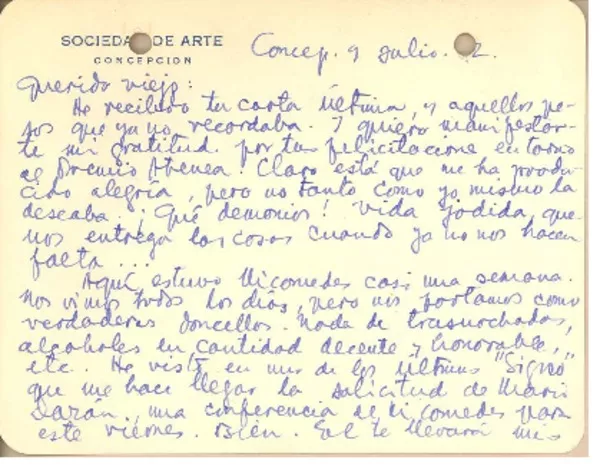 SOCIEDAD DE ARTE
CONCEPCION
Concep. 9 julio. 2.
Querido viejo:
He recibido tu carta última, y aquellos pe-
sos que ya no recordaba. Y quiero manifestar-
te mi gratitud por tus felicitaciones en torno
al Premio Atenea. Claro está que me ha produ-
cido alegría, pero no tanto como yo mismo la
deseaba. ¡Qué demonios! Vida jodida, que
nos entrega las cosas cuando ya no nos hacen
falta...
Aquí estuvo Nicomedes casi una semana.
Nos vimos todos los días, pero nos portamos como
verdaderos doncellos. Nada de trasnochadas,
alcoholes en cantidad decente y honorable,
etc. He visto en uno de los últimos "Signo"
que me hace llegar la solicitud de Mario
una conferencia de Nicomedes para
este viernes. Bien. Él te llevará mis